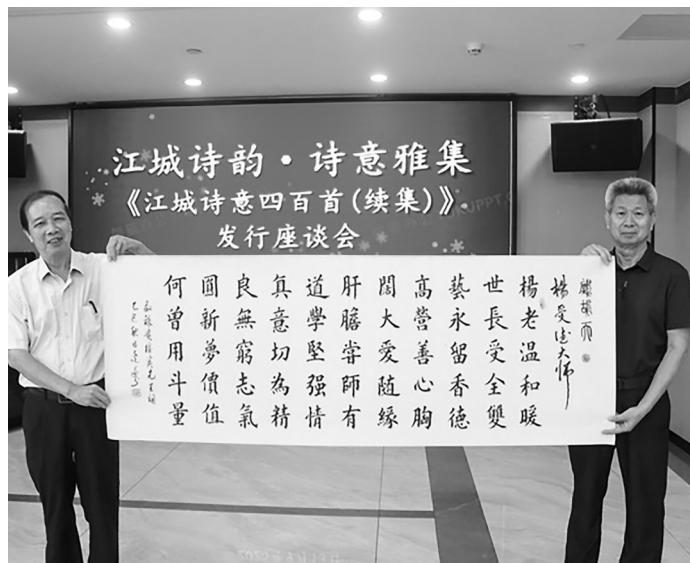 江城诗韵·诗意雅集
《江城诗意四百首(续集)》
发行座谈会
鷓鴣天
楊受德大师
楊老温和暖
世長受全雙
藝永留香德
高營善心胸
闊大爱随緣
肝膽嘗師有
道學堅强情
真意切為精
良無窮志氣
圓新夢價值
何曾用斗量
乙巳秋